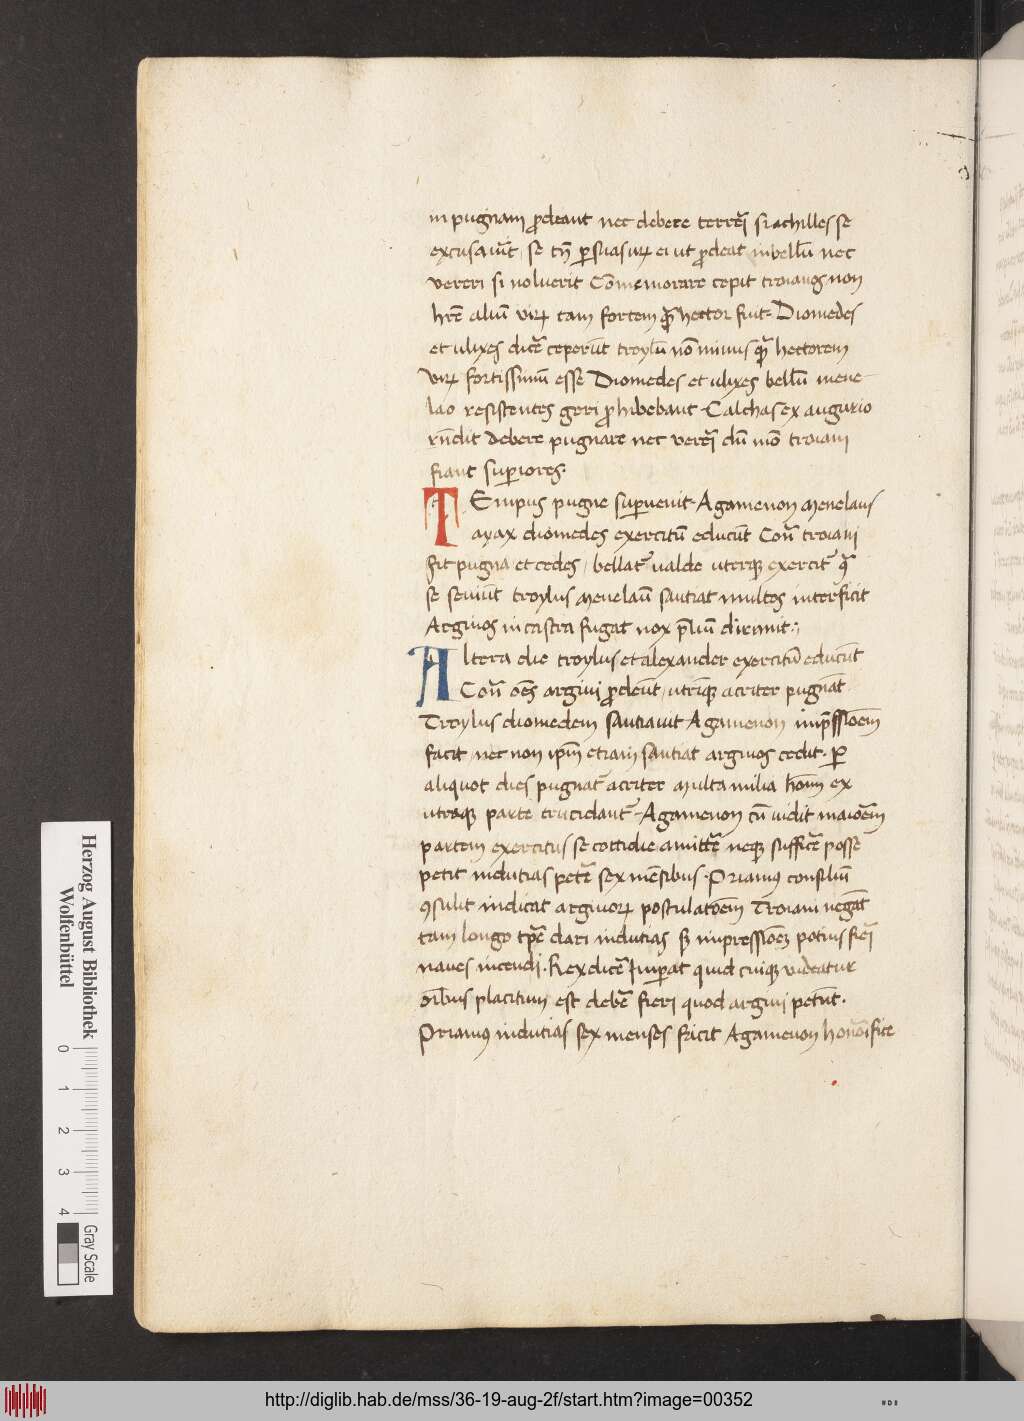 in pugnam ꝓdeant nec debere terrer̄i si achilles se
excusaue͂it / se tn̄ ꝑsuasuꝝ ei ut ꝓdeat in bellū nec
vereri si noluerit Cōmemorare cepit troianos non
hr̄e aliū viꝝ tam fortem qͣꝫ hector fuit Diomedes
et ulixes dic͂e ceperūt troylū nō minus qͣꝫ hectorem
viꝝ fortissimū esse Diomedes et ulixes bellū mene
lao resistentes geri ꝓhibebant Calchas ex augurio
rn̄dit debere pugnare nec verer̄i dū mō troiani
fiant suꝑiores.
TEmpus pugne suꝑuenit Agamenon menelaus
ayax diomedes exercitū educūt Con͂ troiani
fit pugna et cedes / bellat᷑ ualde uterqꝫ exercit᷑
se seuiūt troylus menelaū sautiat multos interficit
Argiuos in castra fugat nox p̄liū dirimit.
Altera die troylus et alexander exercitū educūt
Con͂ oēs argiui ꝓdeūt / utriqꝫ acriter pugnāt
Troylus diomedem sautiauit Agamenon imp̄ssiōem
facit / nec non ip̄m etiam sautiat argiuos cedit. ꝑ
aliquot dies pugnat᷑ acriter multa milia hoīm ex
utraqꝫ parte trucidant᷑ Agamenon cū uidit maiorēm
partem exercitus se cottidie amitt͂e neqꝫ suffic͂e posse
petit indutias pet͂e sex mēsibus. Priamꝰ consiliū
ꝯsulit indicat argiuoꝝ postulatōem Troiani negāt
tam longo tꝑ͂e dari indutias sꝫ impressiōeꝫ potius fier̄i
naues incendi. Rex dic͂e Imꝑat quid cuiqꝫ videatur
oībus placitum est deb͂e fieri quod argiui petūt.
Priamꝰ indutias sex menses facit Agamenon honorīfice
Herzog August Bibliothek
Wolfenbüttel
0 1 2 3 4
Gray Scale
http://diglib.hab.de/mss/36-19-aug-2f/start.htm?image=00352